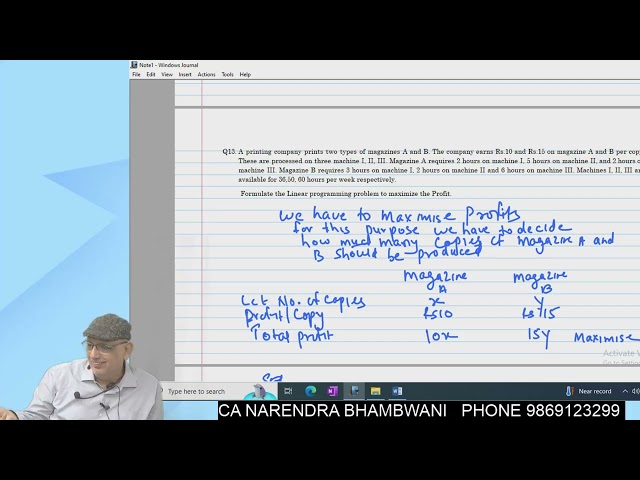 Note1 - Windows Journal
File Edit View Insert Actions Tools Help
Q13. A printing company prints two types of magazines A and B. The company earns Rs.10 and Rs.15 on magazine A and B per copy
These are processed on three machine I, II, III. Magazine A requires 2 hours on machine I, 5 hours on machine II, and 2 hours o
machine III. Magazine B requires 3 hours on machine I, 2 hours on machine II and 6 hours on machine III. Machines I, II, III ar
available for 36,50, 60 hours per week respectively.
Formulate the Linear programming problem to maximize the Profit.
we have to maximise Profits
for this purpose we have to decide
how much many copies of magazine A and
B should be produced
magazine magazine
A B
Let No. of copies x y
Profit/Copy Rs10 Rs 15
Total profit 10x 15y Maximise
Activate W
Go to Setting
Type here to search
Near record
CA NARENDRA BHAMBWANI PHONE 9869123299